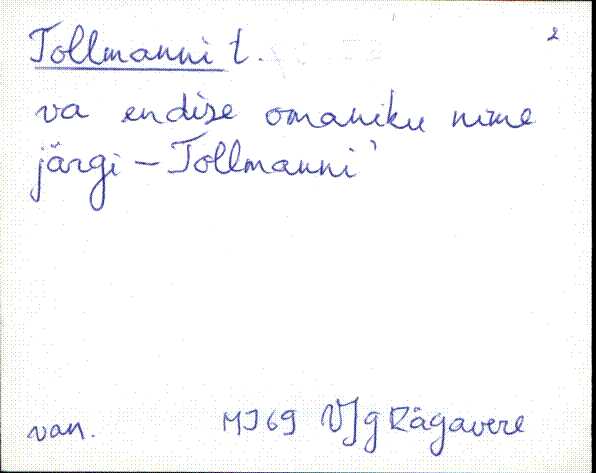 Tollmanni t.
2
va endise omaniku nime
järgi – Tollmanni'
van. MJ69 VJg Rägavere